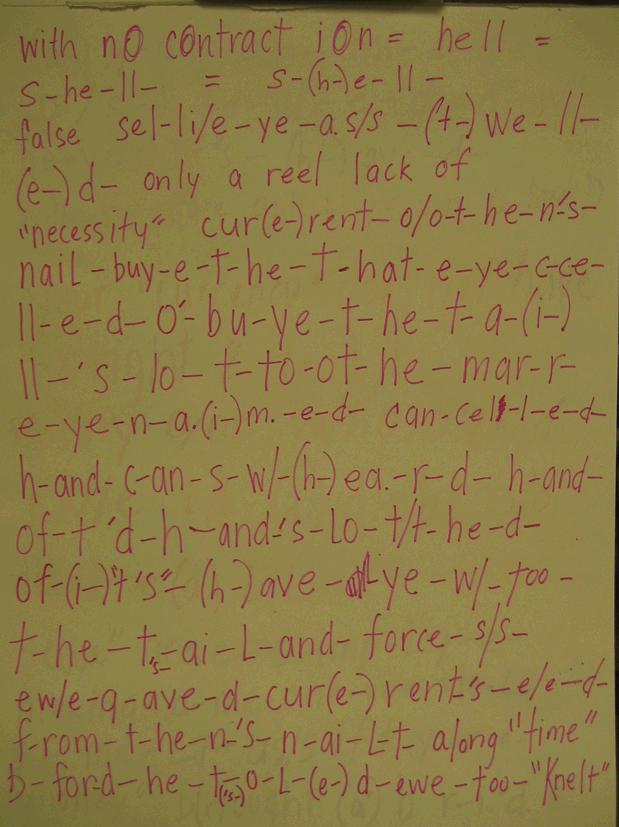 with no contract ion = hell =
s-he-ll- = s-(h-)e-ll-
false sel-li/e-ye-a.s/s -(t-) we-ll-
(e-)d- only a reel lack of
"necessity" cur(e-)rent- o/o-t-he-n's-
nail-buy-e-t-he-t-hat-e-ye-c-ce-
ll-e-d-o'-bu-ye-t-he-t-a-(i-)
ll-'s-lo-t-to-ot-he-mar-r-
e-ye-n-a.(i-)m.-e-d- can-cell-l-e-d-
h-and-c-an-s-w/-(h-)ea.-r-d- h-and-
of-t'd-h-and-'s-Lo-t/t-he-d-
of-(i-)"t's"-(h-)ave-ye-w/-too-
t-he-t's-ai-L-and-force-s/s-
ew/e-q-ave-d-cur(e-)rent's-e/e-d-
f-rom-t-he-n-'s-n-ai-L-t- along "time"
b-ford-he-t('s-)-o-L-(e-)d-ewe-too-"Knelt"